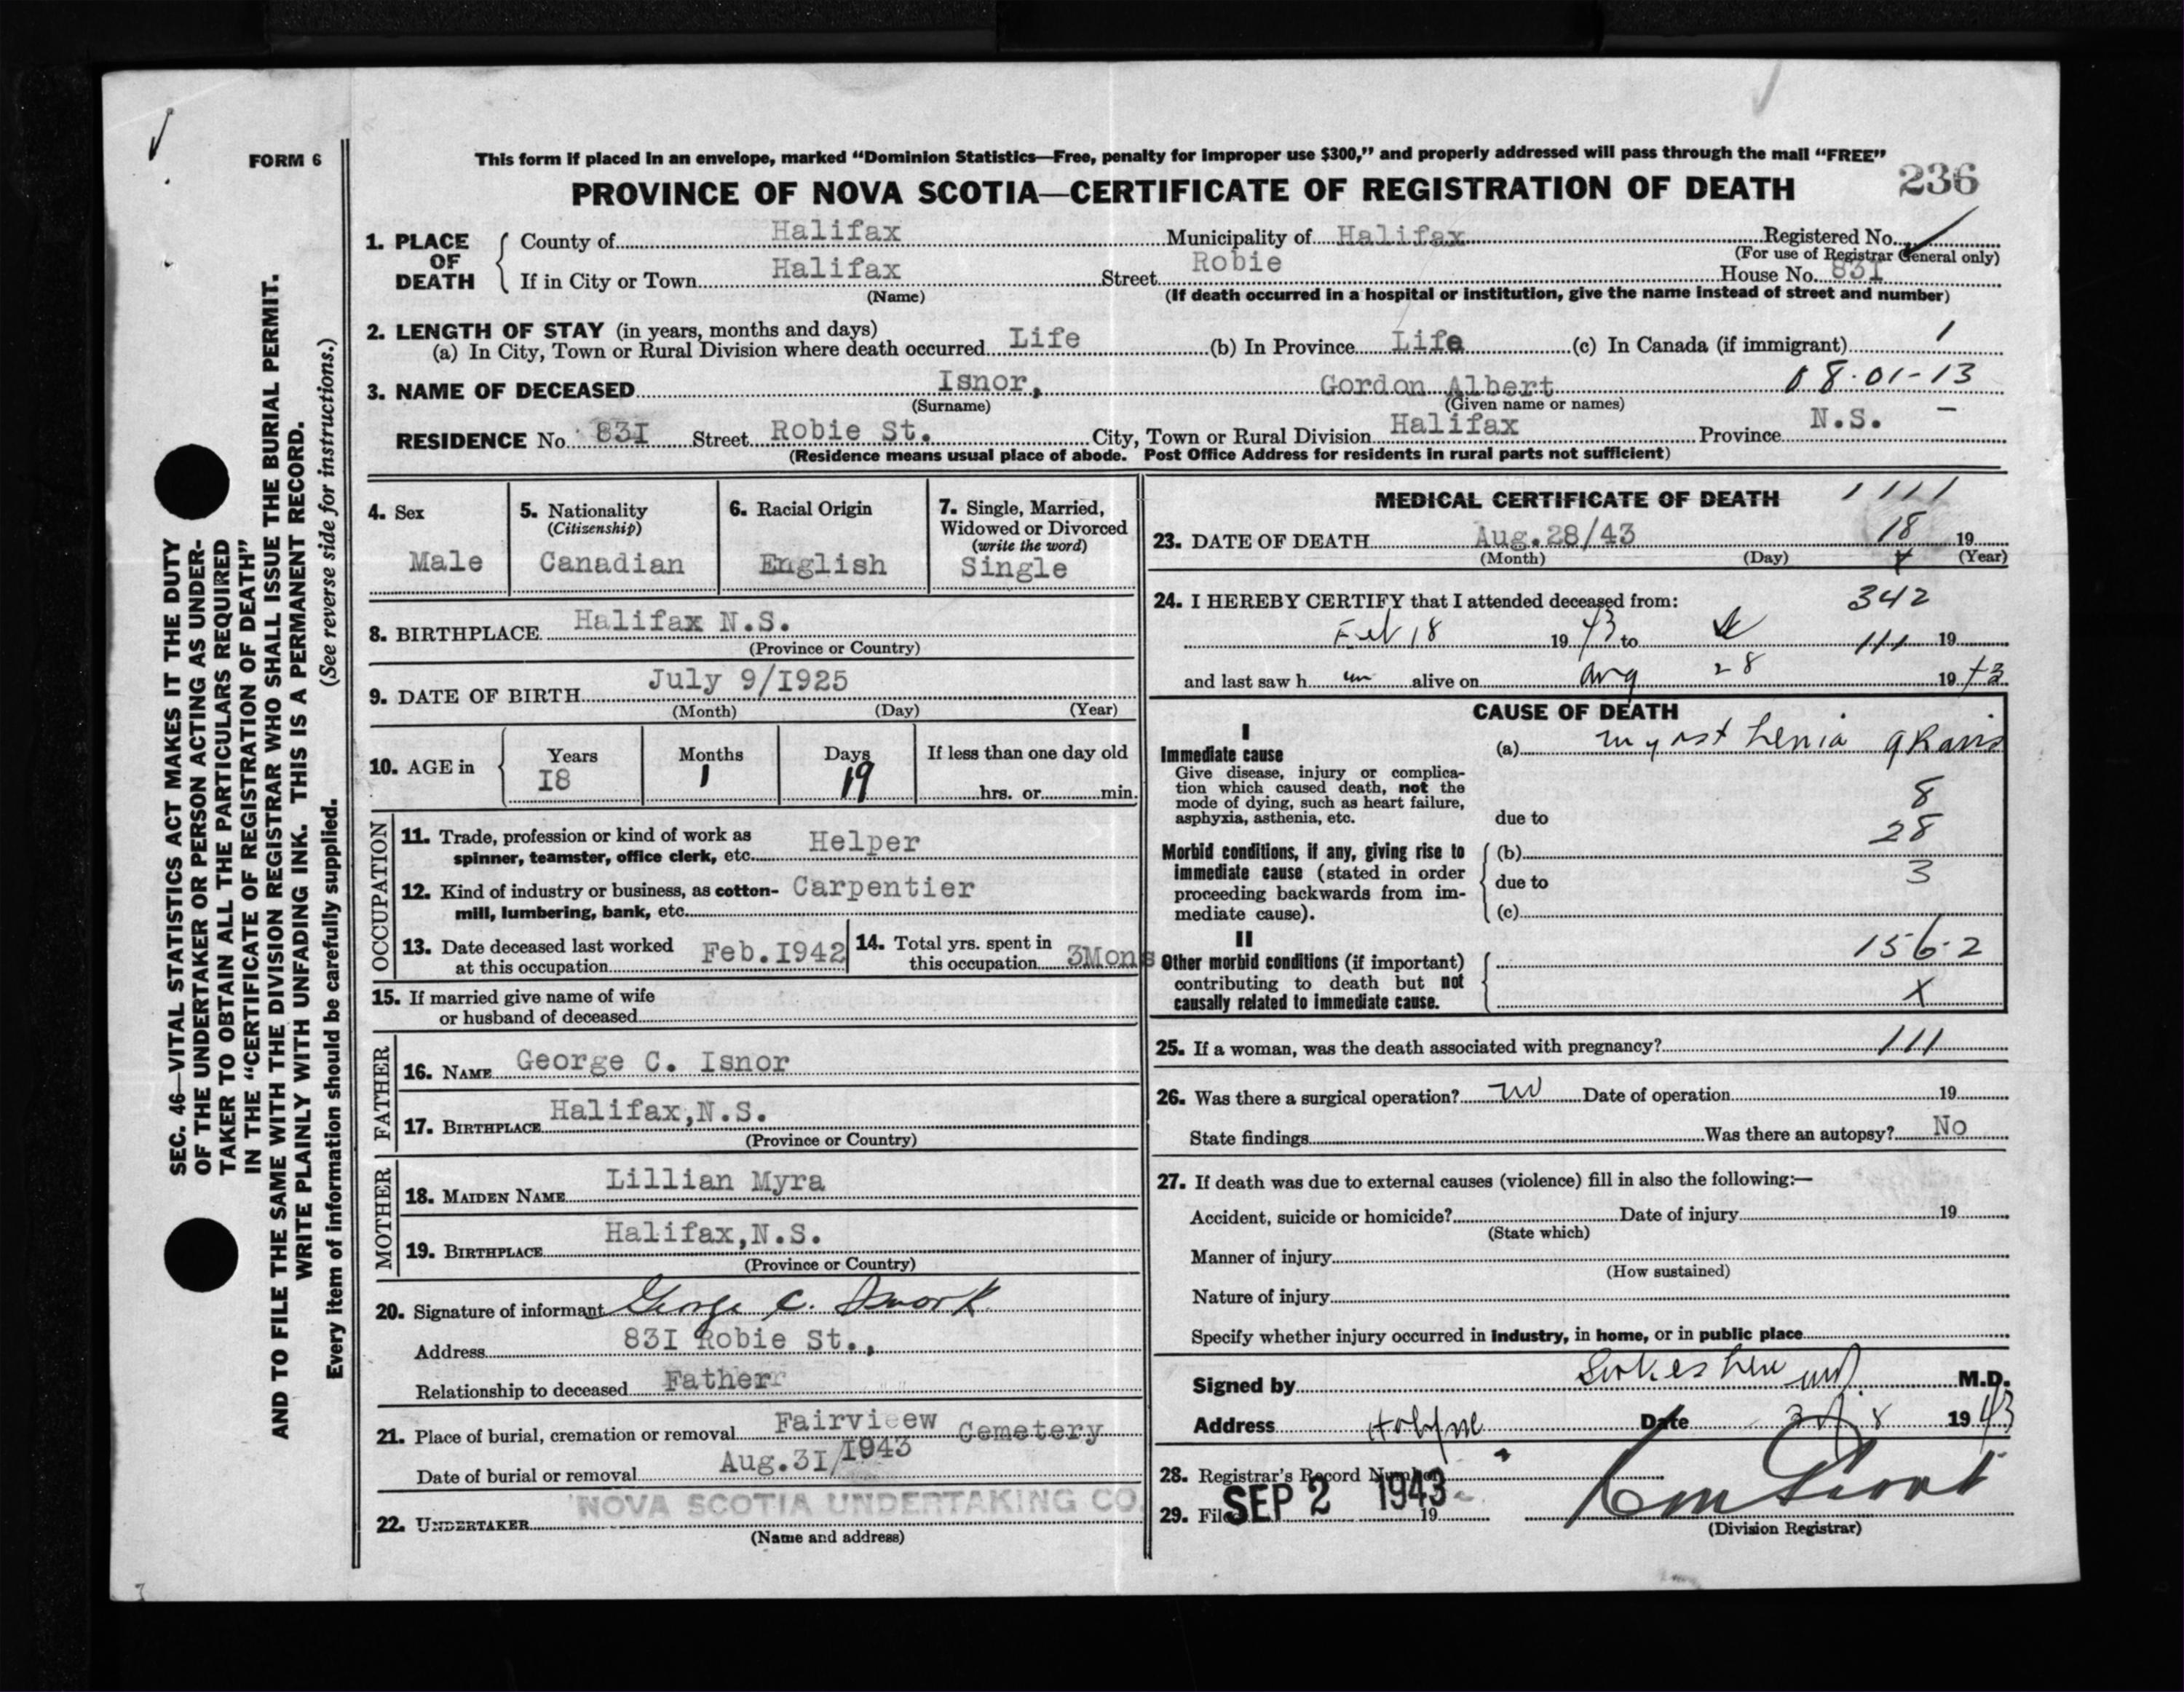 FORM 6
This form if placed in an envelope, marked “Dominion Statistics—Free, penalty for improper use $300,” and properly addressed will pass through the mail “FREE”
PROVINCE OF NOVA SCOTIA—CERTIFICATE OF REGISTRATION OF DEATH 236
1. PLACE OF DEATH
County of Halifax Municipality of Halifax Registered No.
(For use of Registrar General only)
If in City or Town Halifax Street Robie House No. 83I
(Name) (If death occurred in a hospital or institution, give the name instead of street and number)
2. LENGTH OF STAY (in years, months and days)
(a) In City, Town or Rural Division where death occurred Life (b) In Province Life (c) In Canada (if immigrant) 1
3. NAME OF DECEASED Isnor, Gordon Albert 08-01-13
(Surname) (Given name or names)
RESIDENCE No. 83I Street Robie St. City, Town or Rural Division Halifax Province N.S. –
(Residence means usual place of abode. Post Office Address for residents in rural parts not sufficient)
4. Sex
Male
5. Nationality
(Citizenship)
Canadian
6. Racial Origin
English
7. Single, Married,
Widowed or Divorced
(write the word)
Single
8. BIRTHPLACE Halifax N.S.
(Province or Country)
9. DATE OF BIRTH July 9/I925
(Month) (Day) (Year)
10. AGE in Years Months Days If less than one day old
I8 1 19 hrs. or min.
OCCUPATION
11. Trade, profession or kind of work as
spinner, teamster, office clerk, etc. Helper
12. Kind of industry or business, as cotton- Carpentier
mill, lumbering, bank, etc.
13. Date deceased last worked
at this occupation Feb.I942
14. Total yrs. spent in
this occupation 3Mons
15. If married give name of wife
or husband of deceased
FATHER
16. NAME George C. Isnor
17. BIRTHPLACE Halifax,N.S.
(Province or Country)
MOTHER
18. MAIDEN NAME Lillian Myra
19. BIRTHPLACE Halifax,N.S.
(Province or Country)
20. Signature of informant George C. Isnor
Address 83I Robie St.,
Relationship to deceased Father
21. Place of burial, cremation or removal Fairvieew Cemetery
Date of burial or removal Aug.3I/I943
22. UNDERTAKER NOVA SCOTIA UNDERTAKING CO.
(Name and address)
MEDICAL CERTIFICATE OF DEATH 1111
23. DATE OF DEATH Aug.28/43 18 19
(Month) (Day) (Year)
24. I HEREBY CERTIFY that I attended deceased from: 342
Feb 18 1943 to 111 19
and last saw h im alive on Aug 28 1943
CAUSE OF DEATH
I
Immediate cause
Give disease, injury or complica-
tion which caused death, not the
mode of dying, such as heart failure,
asphyxia, asthenia, etc.
(a) myasthenia gravis
8
due to
28
Morbid conditions, if any, giving rise to
immediate cause (stated in order
proceeding backwards from im-
mediate cause).
(b)
due to 3
(c)
II
Other morbid conditions (if important)
contributing to death but not
causally related to immediate cause.
156-2
X
25. If a woman, was the death associated with pregnancy? 111
26. Was there a surgical operation? no Date of operation 19
State findings Was there an autopsy? No
27. If death was due to external causes (violence) fill in also the following:—
Accident, suicide or homicide? Date of injury 19
(State which)
Manner of injury
(How sustained)
Nature of injury
Specify whether injury occurred in industry, in home, or in public place
Signed by M.D.
Address Date 8 1943
28. Registrar's Record Number
29. Filed SEP 2 1943 19
(Division Registrar)
SEC. 46—VITAL STATISTICS ACT MAKES IT THE DUTY
OF THE UNDERTAKER OR PERSON ACTING AS UNDER-
TAKER TO OBTAIN ALL THE PARTICULARS REQUIRED
IN THE “CERTIFICATE OF REGISTRATION OF DEATH”
AND TO FILE THE SAME WITH THE DIVISION REGISTRAR WHO SHALL ISSUE THE BURIAL PERMIT.
WRITE PLAINLY WITH UNFADING INK. THIS IS A PERMANENT RECORD.
Every item of information should be carefully supplied. (See reverse side for instructions.)